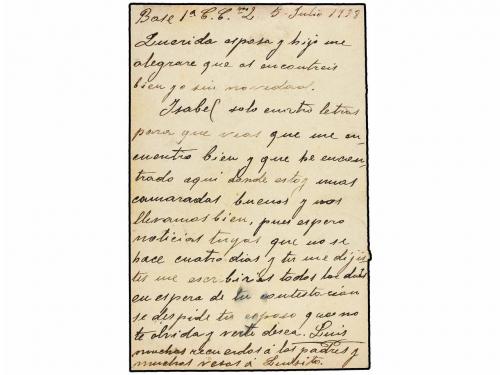 Base 1ª C.C. nº 2 5-Julio 1938
Querida esposa y hijo me
alegrare que os encontreis
bien yo sin novedad.
Isabel solo cuatro letras
para que veas que me en-
cuentro bien y que he encon-
trado aqui donde estoy unos
camaradas buenos y nos
llevamos bien, pues espero
noticias tuyas que no se
hace cuatro dias y tu me dijis
tes me escribirias todos los dias
en espera de tu contestacion
se despide tu esposo que no
te olvida y verte desea. Luis
muchos recuerdos á los padres y
muchos vesos á Luisito.